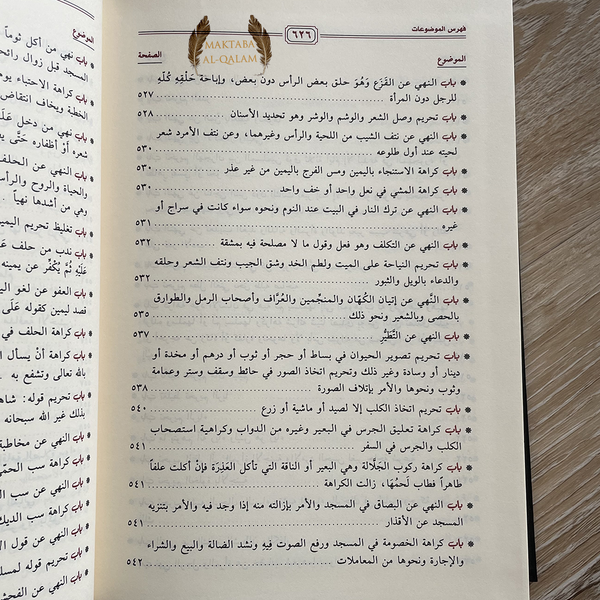 فهرس الموضوعات
٦٢٦
MAKTABA
AL-QALAM
الموضوع
الصفحة
* باب النهي عن القَزَع وَهُوَ حلق بعض الرأس دون بعض، وإباحة حَلْقِهِ كُلِّهِ
للرجل دون المرأة ٥٢٧
* باب تحريم وصل الشعر والوشم والوشر وهو تحديد الأسنان ٥٢٨
* باب النهي عن نتف الشيب من اللحية والرأس وغيرهما، وعن نتف الأمرد شعر
لحيته عند أول طلوعه ٥٣٠
* باب كراهة الاستنجاء باليمين ومس الفرج باليمين من غير عذر ٥٣٠
* باب كراهة المشي في نعل واحد أو خف واحد ٥٣٠
* باب النهي عن ترك النار في البيت عند النوم ونحوه سواء كانت في سراج أو
غيره ٥٣١
* باب النهي عن التكلف وهو فعل وقول ما لا مصلحة فيه بمشقة ٥٣٢
* باب تحريم النياحة على الميت ولطم الخد وشق الجيب ونتف الشعر وحلقه
والدعاء بالويل والثبور ٥٣٢
* باب النَّهي عن إتيان الكُهَّان والمنجِّمين والعُرَّاف وأصحاب الرمل والطوارق
بالحصى وبالشعير ونحو ذلك ٥٣٥
* باب النهي عن التَّطَيُّرِ ٥٣٧
* باب تحريم تصوير الحيوان في بساط أو حجر أو ثوب أو درهم أو مخدة أو
دينار أو وسادة وغير ذلك وتحريم اتخاذ الصور في حائط وسقف وستر وعمامة
وثوب ونحوها والأمر بإتلاف الصورة ٥٣٨
* باب تحريم اتخاذ الكلب إلا لصيد أو ماشية أو زرع ٥٤٠
* باب كراهة تعليق الجرس في البعير وغيره من الدواب وكراهية استصحاب
الكلب والجرس في السفر ٥٤١
* باب كراهة ركوب الجَلَّالة وهي البعير أو الناقة التي تأكل العَذِرَة فإنْ أكلت علفاً
طاهراً فطاب لَحمُهَا، زالت الكراهة ٥٤١
* باب النهي عن البصاق في المسجد والأمر بإزالته منه إذا وجد فيه والأمر بتنزيه
المسجد عن الأقذار ٥٤١
* باب كراهة الخصومة في المسجد ورفع الصوت فِيهِ ونشد الضالة والبيع والشراء
والإجارة ونحوها من المعاملات ٥٤٢
الموضوع
* باب نهي من أكل ثوماً
المسجد قبل زوال رائح
* باب كراهة الاحتباء يو
الخطبة ويخاف انتقاض
* باب نهي من دخل عَلَـ
شعره أَوْ أظفاره حَتَّى
* باب النهي عن الحلف
والحياة والروح والرأس
وهي من أشدها نهياً
* باب تغليظ تحريم اليم
* باب ندب من حلف عَـ
عَلَيْهِ ثُمَّ يُكَفِّر عن يمينه
* باب العفو عن لغو الي
قصد ليمين كقوله عَلَى
* باب كراهة الحلف في
* باب كراهة أنْ يسأل ا
بالله تعالى وتشفع به
* باب تحريم قوله: شاه
بذلك غير الله سبحانه
* باب النهي عن مخاطبة
* باب كراهة سب الحمّ
* باب النهي عن سب
* باب كراهة سب الديك
* باب النهي عن قول
* باب تحريم قوله لمسل
* باب النهي عن الفحش